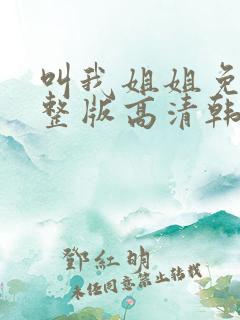 叫我姐姐免
整版高清韩
鄧紅明
未经同意禁止转载